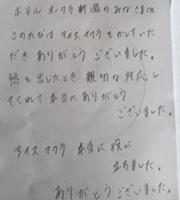 ホテル オークラ新潟のみなさまへ
このたびは アイスマクラをかしていた
だき ありがとう ございました。
熱を出したとき 親切な対応し
てくれて 本当に ありがとう
ございました。
アイス マクラ 本当に 役に
立ちました。
ありがとう ございました。